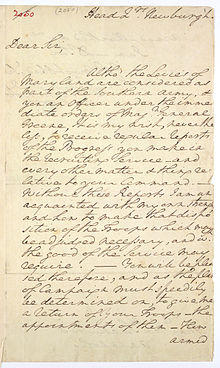 2060 (2060) Head Qrs. Newburgh
Dear Sir,
Altho' the Levies of
Maryland are considered as
part of the Southern Army, &
you an Officer under the imme
diate orders of Majr. General
Greene, it is my wish, neverthe
less, to receive regular Reports
of the Progress you make in
the recruiting Service and
every other matter & thing re
lative to your Command
Without these Reports I am un
acquainted with my own strength
and how to make that dispo
sition of the Troops which may
be adjudged necessary, and
the good of the Service may
require. You will be plea
sed therefore, and as the plan
of Campaign must speedily
be determined on, to give me
a return of your Troops the
appointments of them how
armed